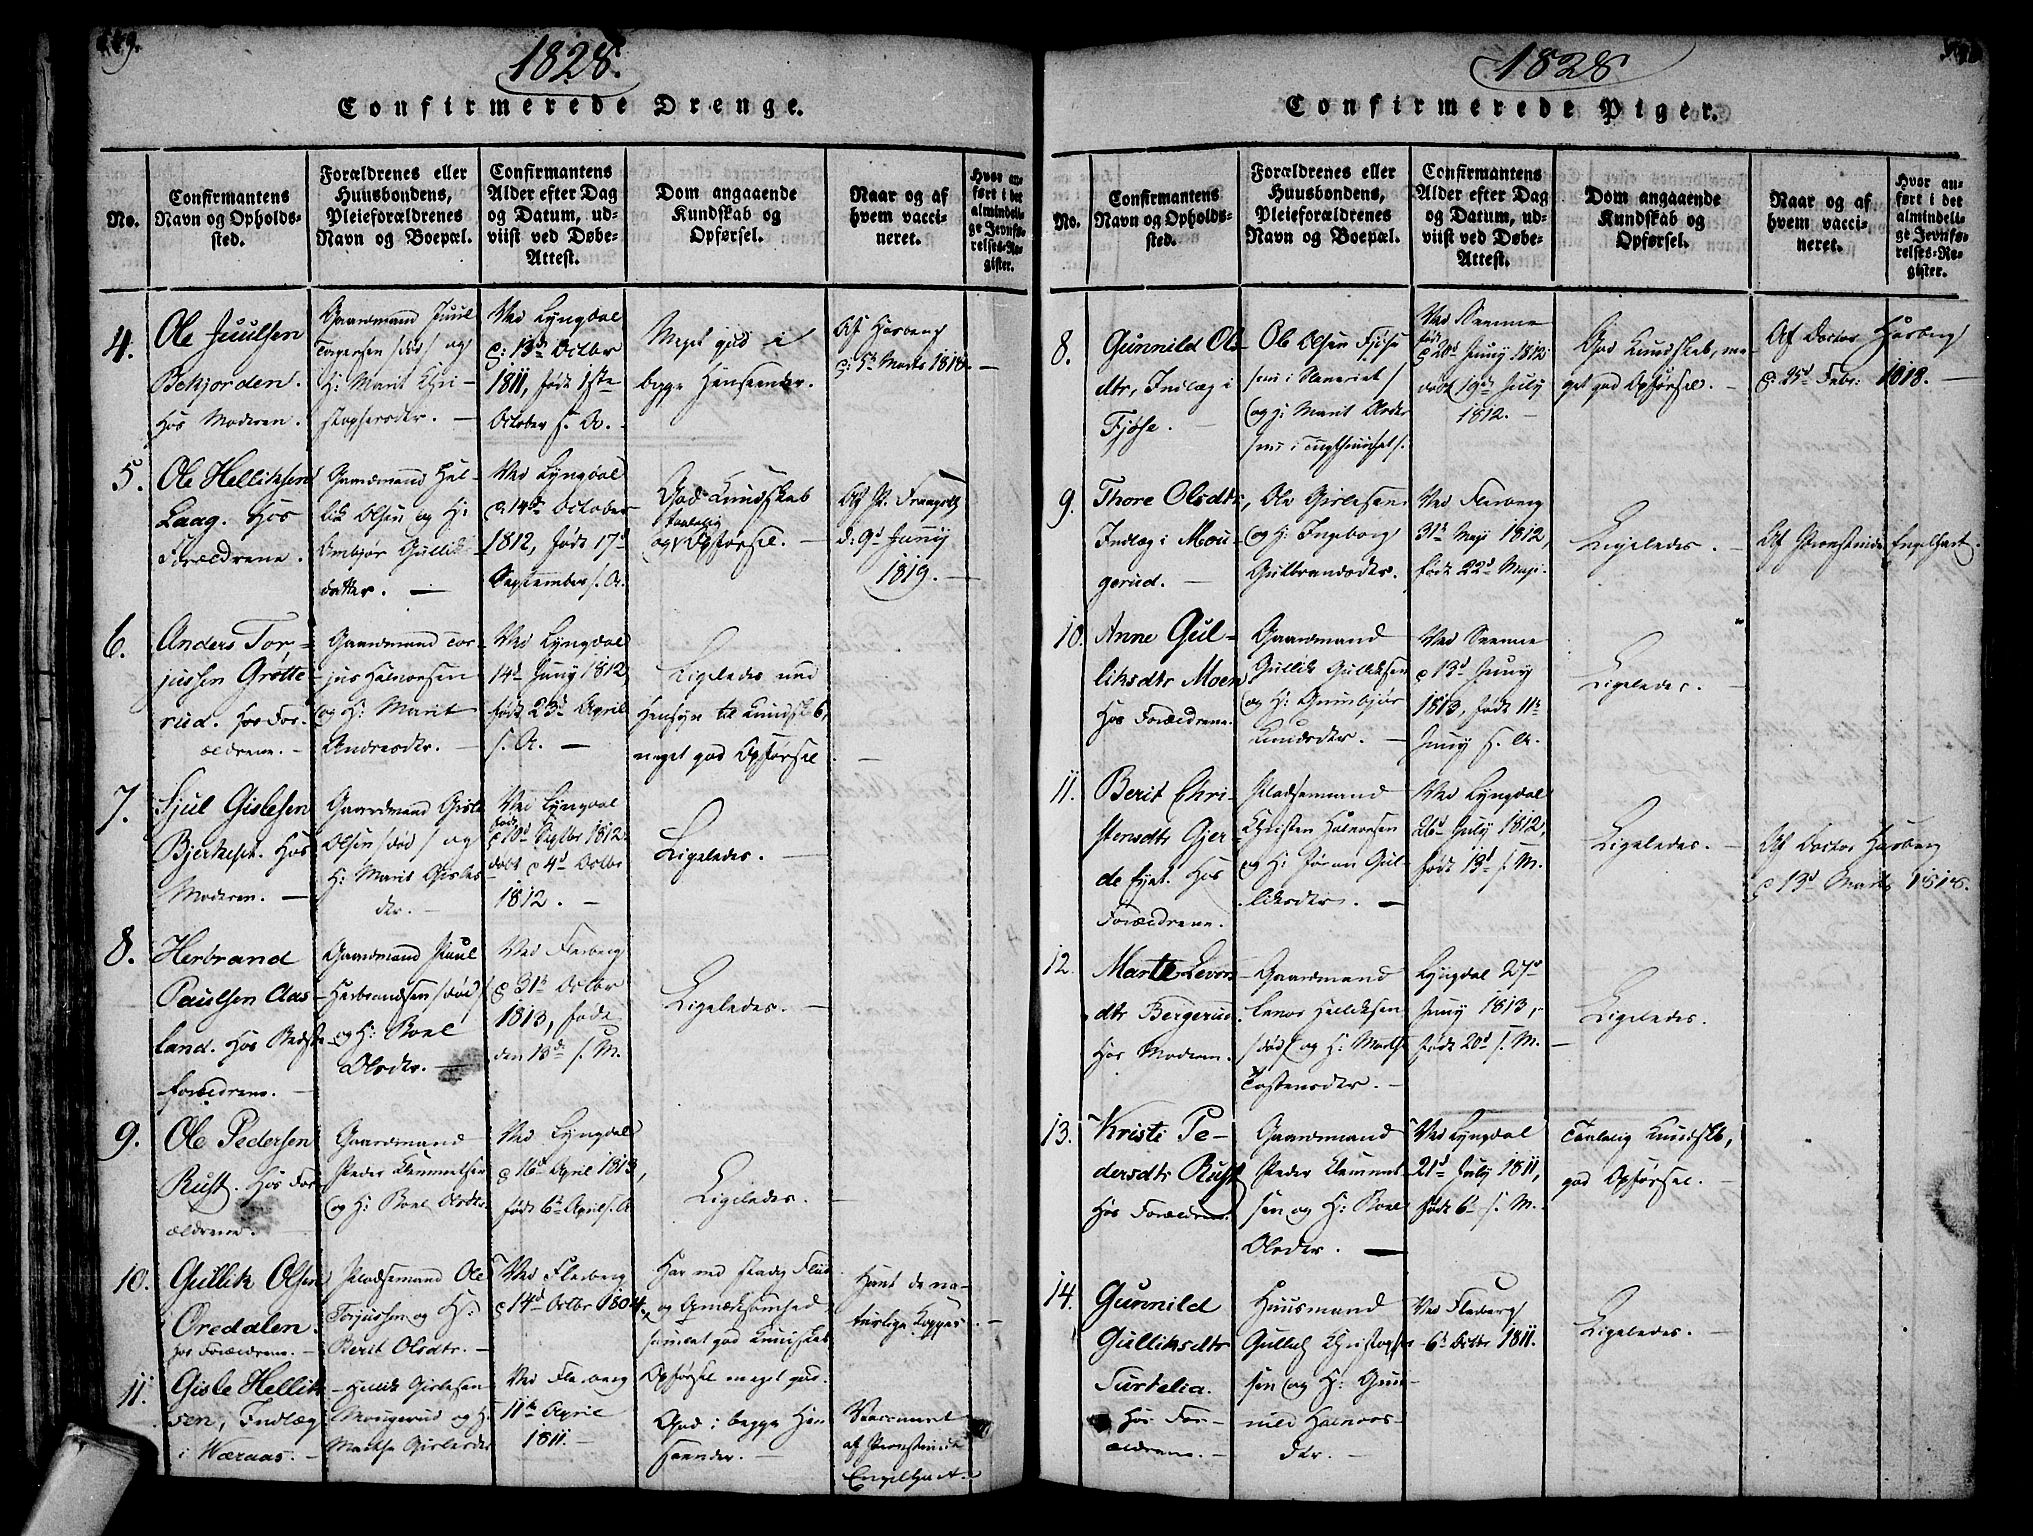 1828.
Confirmerede Drenge.
No.
Confirmantens
Navn og Opholds-
sted.
Forældrenes eller
Huusbondens,
Pleieforældrenes
Navn og Boepæl.
Confirmantens
Alder efter Dag
og Datum, ud-
viist ved Døbe-
Attest.
Dom angaaende
Kundskab og
Opførsel.
Naar og af
hvem vacci-
neret.
Hvor an-
ført i det
almindeli-
ge Jevnfø-
relses-Re-
gister.
4.
Ole Juulsen
Bekjorden.
Hos Moderen.
Gaardmand Juul
Torgersen /død/ og
H: Marit Chri-
stophersdtr. —
Ved Lyngdal
d: 13de Octbr
1811, født 1ste
October s. A. -
Meget god i
begge Henseender.
Af Horbery
d: 5te Marts 1818. —
5.
Ole Helliksen
Laag. Hos
Forældrene.
Gaardmand Hel-
lik Olsen og H:
Ambjør Gullik-
datter. —
Ved Lyngdal
d: 14de October
1812, født 17d
September s. A.
God Kundskab
og taalelig Opførsel. —
Af Pr.
d: 9d Juny
1819. —
6.
Anders Tor-
jussen Grøtte
rud. Hos For-
ældrene. -
Gaardmand Tor-
jus Halvorsen
og H: Marit
Andersdtr. —
Ved Lyngdal
14de Juny 1812
født 23d April
s. A. —
Ligeledes med
Hensyn til Kundskb,
meget god Opførsel. —
7.
Sjul Gislesen
Bjerkeset. Hos
Moderen. —
Gaardmand Gisle
Olsen /død/ og
H: Marit Gisles-
dtr. -
Ved Lyngdal
født d 10d Septbr 1812
døbt d 4d Octbr
1812. -
Ligeledes. —
8.
Herbrand
Paulsen Aas-
land. Hos Bedste
forældrene. —
Gaardmand Paul
Herbrandsen /død/
og H: Boel
Olsdtr. —
Ved Flesberg
d 31te Octbr
1813, født
den 13de s. M.
Ligeledes. —
9.
Ole Pedersen
Rust. Hos For-
ældrene. —
Gaardmand
Peder Klemmetsen
og H: Boel Olsdtr.
Ved Lyngdal
d 16d April 1813,
født 6te April s. A
Ligeledes. —
10.
Gullik Olsen
Øredalen.
hos Forældrene. —
Pladsemand Ole
Torjussen og H:
Berit Olsdtr. —
Ved Flesberg
d 14d Octbr 1804.
Har ved stadig Flid
og Opmærksomhed
samlet god Kundskab
Opførsel meget god.
Havt de na-
turlige Kopper. —
11.
Gisle Hellik
sen, Indlæg
i Wæraas. —
Hellik Gislesen
Mougerud og H:
Marthe Gislesdtr
Ved Flesberg
11te April
1811. —
God i begge Hen
seender. —
Vaccineret
af Præsteinde
Engelhart. —
1828
Confirmerede Piger.
No.
Confirmantens
Navn og Opholds-
sted.
Forældrenes eller
Huusbondens,
Pleieforældrenes
Navn og Boepæl.
Confirmantens
Alder efter Dag
og Datum, ud-
viist ved Døbe-
Attest.
Dom angaaende
Kundskab og
Opførsel.
Naar og af
hvem vacci-
neret.
Hvor an-
ført i det
almindeli-
ge Jevnfø-
relses-Re-
gister.
8.
Gunnild Ols-
dtr, Indlæg i
Fjøse. -
Ole Olsen Fjøse
/nu i Slaveriet/
og H: Marit Olsdtr
/nu i Tugthuuset/.
Ved Svenne
født d 20d Juny 1812
døbt 19de July
1812. -
God Kundskab, me-
get god Opførsel. —
Af Doctor Horbery
d: 25d Febr: 1818. —
9.
Thore Olsdtr,
Indlæg i Mou-
gerud. —
Ole Gislesen
og H: Ingeborg
Gulbrandsdtr.
Ved Flesberg
31te Maji 1812,
født 22d Maji.
Ligeledes. —
Af Præsteinde Engelhart.
10.
Anne Gul-
liksdtr Moen
Hos Forældrene.
Gaardmand
Gullik Gulliksen
og H: Gunnbjør
Knudsdtr. —
Ved Svenne
d 13d Juny
1813, født 11te
Juny s. A.
Ligeledes. —
11.
Berit Chri-
stensdtr Gjer-
de Ejet. Hos
Forældrene.
Pladsemand
Christen Halvorsen
og H: Jøran Gul-
liksdtr. —
Ved Lyngdal
26d July 1812,
født 13d s. M.
Ligeledes. —
Af Doctor Horbery
d 13d Marts 1818.
12.
Marte Levor
dtr Bergerud.
Hos Moderen.
Gaardmand
Levor Helliksen
/død/ og H: Marthe
Tostensdtr. —
Lyngdal 27d
Juny 1813,
født 20d s. M. —
Ligeledes.
13.
Kristi Pe-
dersdtr Rust
Hos Forældrene.
Gaardmand
Peder Klemmet
sen og H: Boel
Olsdtr. —
Ved Lyngdal
21d July 1811,
født 6te s. M. —
Taalelig Kundskb,
god Opførsel. —
14.
Gunnild
Gulliksdtr
Surtelia.
Hos For-
ældrene. —
Huusmand
Gullik Christopher
sen og H: Gun-
nild Halvors-
dtr. —
Ved Flesberg
6te Octbr 1811.
Ligeledes. —